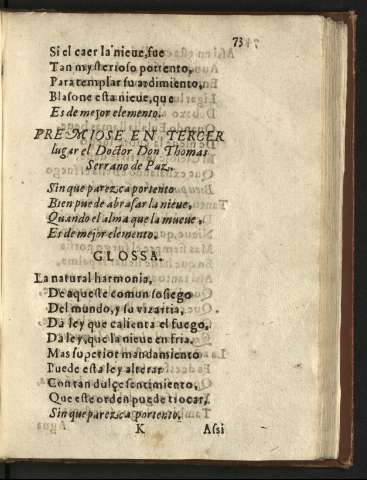 73
Si el caer la nieue, fue
Tan mysterioso portento,
Para templar su ardimiento,
Blasone esta nieue, que
Es de mejor elemento.
PREMIOSE EN TERCER
lugar el Doctor Don Thomas
Serrano de Paz.
Sin que parezca portento
Bien puede abrasar la nieue,
Quando el alma que la mueue,
Es de mejor elemento.
GLOSSA.
La natural harmonia,
De aqueste comun sosiego
Del mundo, y su vizarria,
Dà ley que calienta el fuego,
Dà ley, que la nieue enfria.
Mas superior mandamiento
Puede esta ley alterar
Con tan dulçe sentimiento,
Que este orden puede trocar,
Sin que parezca portento.
K Assi